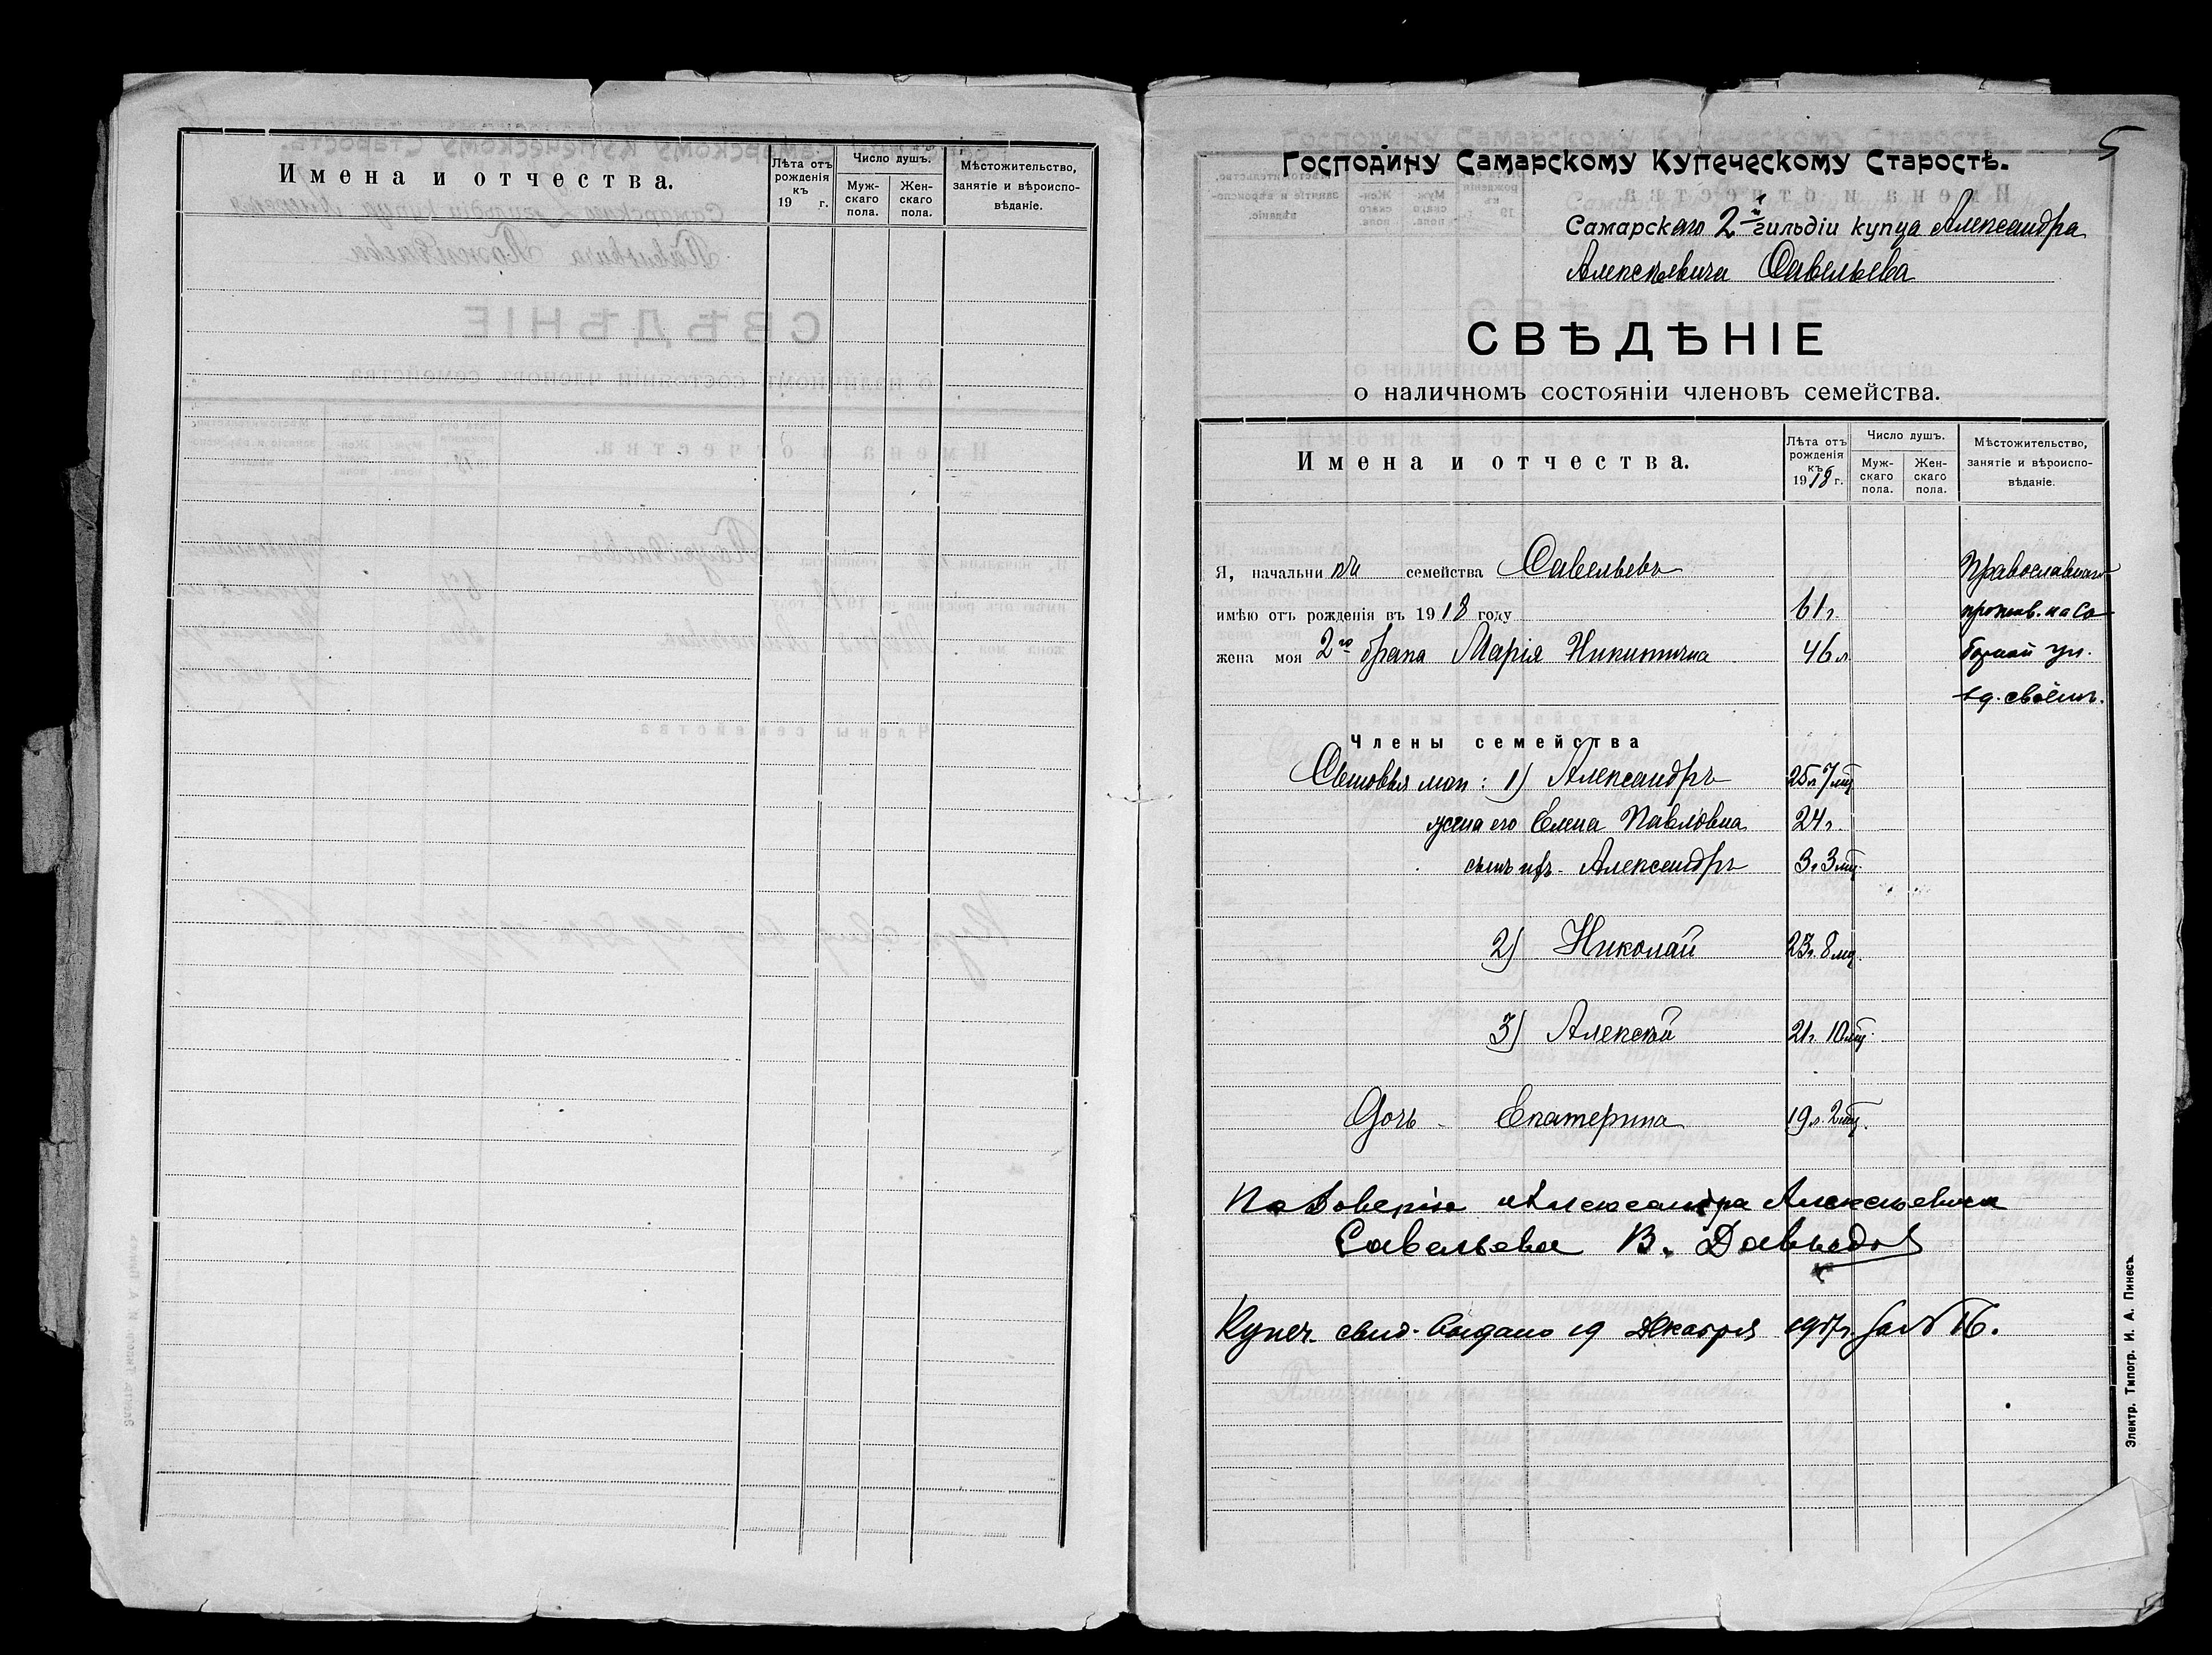 Имена и отчества.
Лѣта отъ рожденія къ 19 г.
Число душъ.
Мужскаго пола.
Женскаго пола.
Мѣстожительство, занятіе и вѣроисповѣданіе.
5
Господину Самарскому Купеческому Старостѣ.
Самарскаго 2й гильдіи купца Александра
Алексѣевича Савельева
СВѢДѢНІЕ
о наличномъ состояніи членовъ семейства.
Имена и отчества.
Лѣта отъ рожденія къ 1918 г.
Число душъ.
Мужскаго пола.
Женскаго пола.
Мѣстожительство, занятіе и вѣроисповѣданіе.
Я, начальникъ семейства Савельевъ Православнаго
имѣю отъ рожденія въ 1918 году 61 г. прожив. на Со
жена моя 2го брака Марія Никитична 46 л. борной ул.
в д. своёмъ.
Члены семейства
Сыновья мои: 1) Александръ 25 л. 7 мц.
жена его Елена Павловна 24 г.
сынъ ихъ - Александръ 3 г. 3 мц.
2) Николай 23 г. 8 мц.
3) Алексѣй 21 г. 10 мц.
Дочь - Екатерина 19 л. 2 мц.
По довѣрію Александра Алексѣевича
Савельева В. Давыдов
Купеч. свид. выдано 19 Декабря 1917 г. за № 16.
Электр. Типогр. И. А. Пинесъ